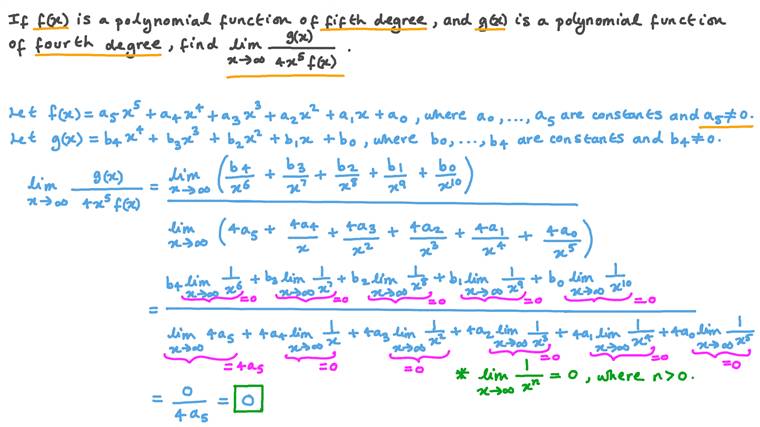 If f(x) is a polynomial function of fifth degree, and g(x) is a polynomial function
of fourth degree, find lim x→∞ g(x) / 4x⁵f(x).
Let f(x) = a₅x⁵ + a₄x⁴ + a₃x³ + a₂x² + a₁x + a₀, where a₀, ..., a₅ are constants and a₅ ≠ 0.
Let g(x) = b₄x⁴ + b₃x³ + b₂x² + b₁x + b₀, where b₀, ..., b₄ are constants and b₄ ≠ 0.
lim x→∞ g(x) / 4x⁵f(x) = lim x→∞ (b₄/x⁶ + b₃/x⁷ + b₂/x⁸ + b₁/x⁹ + b₀/x¹⁰)
lim x→∞ (4a₅ + 4a₄/x + 4a₃/x² + 4a₂/x³ + 4a₁/x⁴ + 4a₀/x⁵)
= b₄ lim x→∞ 1/x⁶ + b₃ lim x→∞ 1/x⁷ + b₂ lim x→∞ 1/x⁸ + b₁ lim x→∞ 1/x⁹ + b₀ lim x→∞ 1/x¹⁰
=0 =0 =0 =0 =0
lim x→∞ 4a₅ + 4a₄ lim x→∞ 1/x + 4a₃ lim x→∞ 1/x² + 4a₂ lim x→∞ 1/x³ + 4a₁ lim x→∞ 1/x⁴ + 4a₀ lim x→∞ 1/x⁵
=4a₅ =0 =0 =0 =0 =0
* lim x→∞ 1/xⁿ = 0, where n>0.
= 0 / 4a₅ = 0